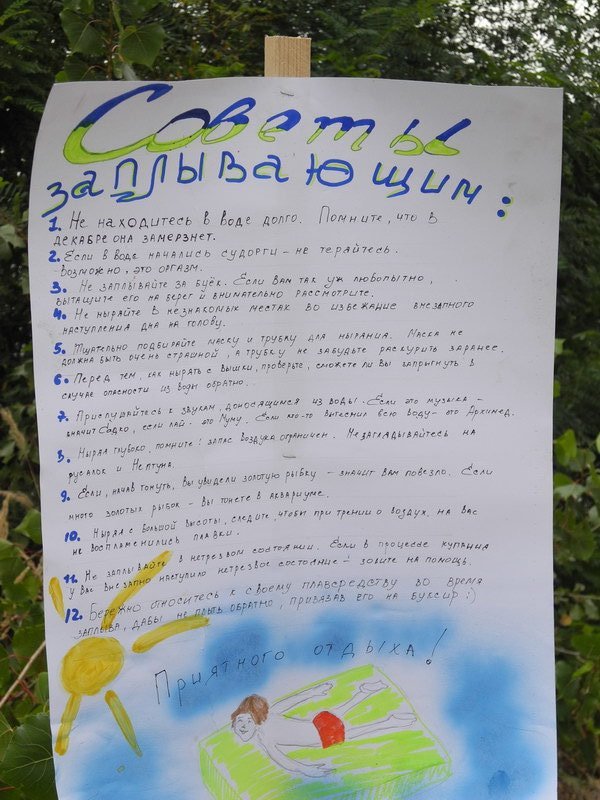 Советы
заплывающим:
1. Не находитесь в воде долго. Помните, что в
декабре она замерзнет.
2. Если в воде начались судорги - не теряйтесь.
Возможно, это оргазм.
3. Не заплывайте за буёк. Если вам так уж любопытно,
вытащите его на берег и внимательно рассмотрите.
4. Не ныряйте в незнакомых местах во избежание внезапного
наступления дна на голову.
5. Тщательно подбирайте маску и трубку для ныряния. Маска не
должна быть очень страшной, а трубку не забудьте раскурить заранее.
6. Перед тем, как нырять с вышки, проверьте, сможете ли вы запрыгнуть в
случае опасности из воды обратно.
7. Прислушайтесь к звукам, доносящимся из воды. Если это музыка -
значит Садко, если лай - это Муму. Если кто-то вытеснил всю воду - это Архимед.
8. Ныряя глубоко, помните: запас воздуха ограничен. Незаглядывайтесь на
русалок и Нептуна.
9. Если, начав тонуть, вы увидели золотую рыбку - значит вам повезло. Если
много золотых рыбок - вы тонете в аквариуме.
10. Ныряя с большой высоты, следите, чтобы при трении о воздух, на вас
не воспламенились плавки.
11. Не заплывайте в нетрезвом состоянии. Если в процессе купания
у вас внезапно наступило нетрезвое состояние - зовите на помощь.
12. Бережно относитесь к своему плавсредству во время
заплыва, дабы не плыть обратно, привязав его на буксир :)
Приятного отдыха!